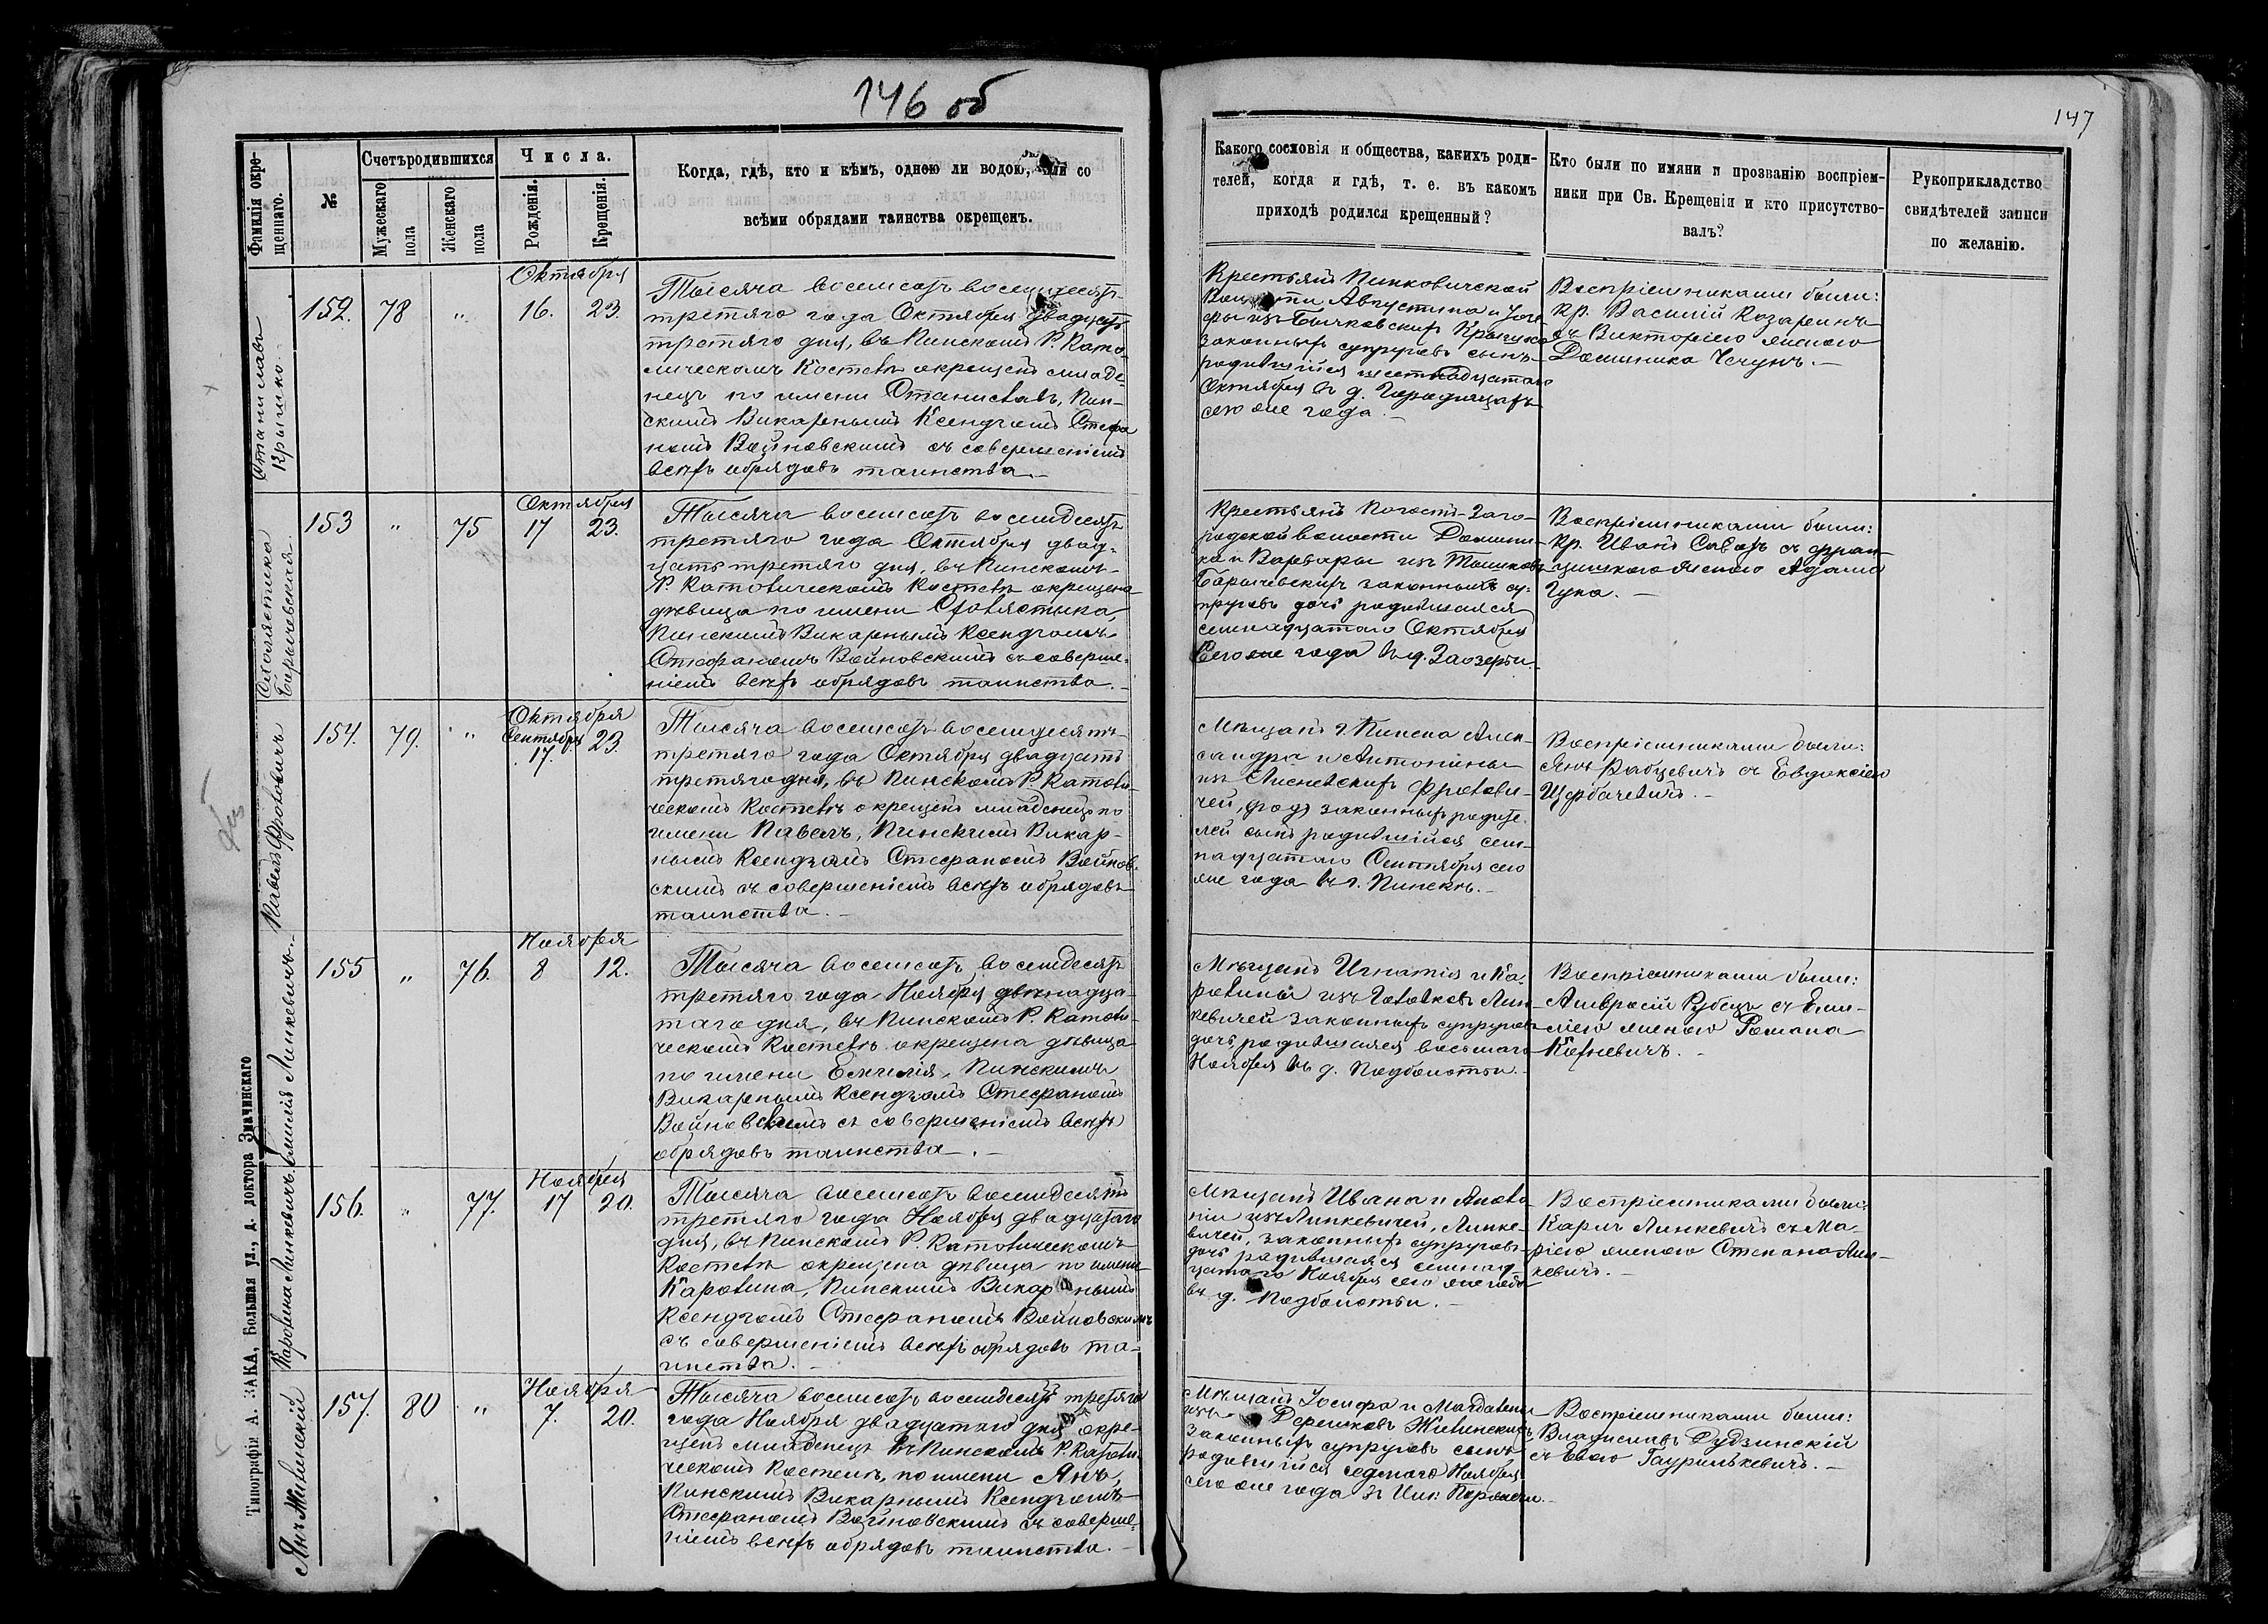 146 об
147
Фамилія окре-
щеннаго.
№
Счетъ родившихся
Мужескаго
пола
Женскаго
пола
Числа.
Рожденія.
Крещенія.
Когда, гдѣ, кто и кѣмъ, одною ли водою, или со
всѣми обрядами таинства окрещенъ.
Какого сословія и общества, какихъ роди-
телей, когда и гдѣ, т. е. въ какомъ
приходѣ родился крещенный?
Кто были по имяни и прозванію воспріем-
ники при Св. Крещеніи и кто присутство-
валъ?
Рукоприкладство
свидѣтелей записи
по желанію.
Станиславъ
Крышко.
152. 78 "
Октября
16. 23.
Тысяча восемсотъ восемдесятъ
третяго года Октября двадцать
третяго дня, въ Пинскомъ Р. Като-
лическомъ Костелѣ окрещенъ младе-
нецъ по имени Станиславъ, Пин-
скимъ Викарнымъ Ксендзомъ Стефа
номъ Войновскимъ съ совершеніемъ
всѣхъ обрядовъ таинства.
Крестьянъ Пинковичской
Волости Августина и
изъ Бычковскихъ Крышко
законныхъ супруговъ сынъ
родившійся шестнадцатаго
Октября въ д. Городищахъ
сего же года.
Воспріемниками были:
Кр. Василій Козаринъ
съ Викторіею женою
Доминика Чечунъ.
Схолястика
Барычевская.
153 " 75
Октября
17 23.
Тысяча восемсотъ восемдесятъ
третяго года Октября двад-
цать третяго дня, въ Пинскомъ
Р. Католическомъ Костелѣ окрещена
дѣвица по имени Схолястика,
Пинскимъ Викарнымъ Ксендзомъ
Стефаномъ Войновскимъ съ соверше-
ніемъ всѣхъ обрядовъ таинства.
Крестьянъ Погостъ-Заго-
родской волости Домини-
ка и Варвары изъ
Барычевскихъ законныхъ су-
пруговъ дочь родившаяся
семнадцатаго Октября
Сего же года въ д. Заозерьи.
Воспріемниками были:
Кр. Иванъ съ Фран-
цишкою женою Адама
Гука.
Павелъ Фроловичъ
154. 79. "
Октября
Сентября
17. 23.
Тысяча восемсотъ восемдесятъ
третяго года Октября двадцать
третяго дня, въ Пинскомъ Р. Католи-
ческомъ Костелѣ окрещенъ младенецъ по
имени Павелъ, Пинскимъ Викар-
нымъ Ксендзомъ Стефаномъ Войнов-
скимъ съ совершеніемъ всѣхъ обрядовъ
таинства.
Мѣщанъ г. Пинска Алек-
сандра и Антонины
изъ Лисневскихъ Фролови-
чей, законныхъ родите-
лей сынъ родившійся сем-
надцатаго Сентября сего
же года въ г. Пинскѣ.
Воспріемниками были:
Янъ Рабцевичъ съ Евдоксіею
Щербачевичъ.
Емилія Линкевичъ.
155 " 76.
Ноября
8 12.
Тысяча восемсотъ восемдесятъ
третяго года Ноября двѣнадца-
таго дня, въ Пинскомъ Р. Католи-
ческомъ Костелѣ окрещена дѣвица
по имени Емилія, Пинскимъ
Викарнымъ Ксендзомъ Стефаномъ
Войновскимъ съ совершеніемъ всѣхъ
обрядовъ таинства.
Мѣщанъ Игнатія и Ка-
ролины изъ Головковъ Лин
кевичей законныхъ супруговъ
дочь родившаяся восьмаго
Ноября въ д. Подболотьи.
Воспріемниками были:
Амвросій Рубецъ съ Еми-
ліею женою Романа
Кохневичъ.
Каролина Линкевичъ.
156. " 77.
Ноября
17 20.
Тысяча восемсотъ восемдесятъ
третяго года Ноября двадцатаго
дня, въ Пинскомъ Р. Католическомъ
Костелѣ окрещена дѣвица по имени
Каролина, Пинскимъ Викарнымъ
Ксендзомъ Стефаномъ Войновскимъ
съ совершеніемъ всѣхъ обрядовъ та-
инства.
Мѣщанъ Ивана и Аполо
ніи изъ Линкевичей, Линке-
вичей, законныхъ супруговъ
дочь родившаяся семнад-
цатаго Ноября сего же года
въ д. Подболотьи.
Воспріемниками были:
Карлъ Линкевичъ съ Ма
ріею женою Степана Лин-
кевичъ.
Янъ Жилинскій
157. 80 "
Ноября
7. 20.
Тысяча восемсотъ восемдесятъ третяго
года Ноября двадцатаго дня окре-
щенъ младенецъ въ Пинскомъ Р. Католи-
ческомъ Костелѣ, по имени Янъ,
Пинскимъ Викарнымъ Ксендзомъ
Стефаномъ Войновскимъ съ соверше-
ніемъ всѣхъ обрядовъ таинства.
Мѣщанъ Іосифа и Магдалены
изъ Жилинскихъ
законныхъ супруговъ сынъ
родившійся седмаго Ноября
сего же года въ
Воспріемниками были:
Владиславъ Дудзинскій
съ Евою Гаурилькевичъ.
Типографія А. ЗАКА, Большая ул., д. доктора Значинскаго